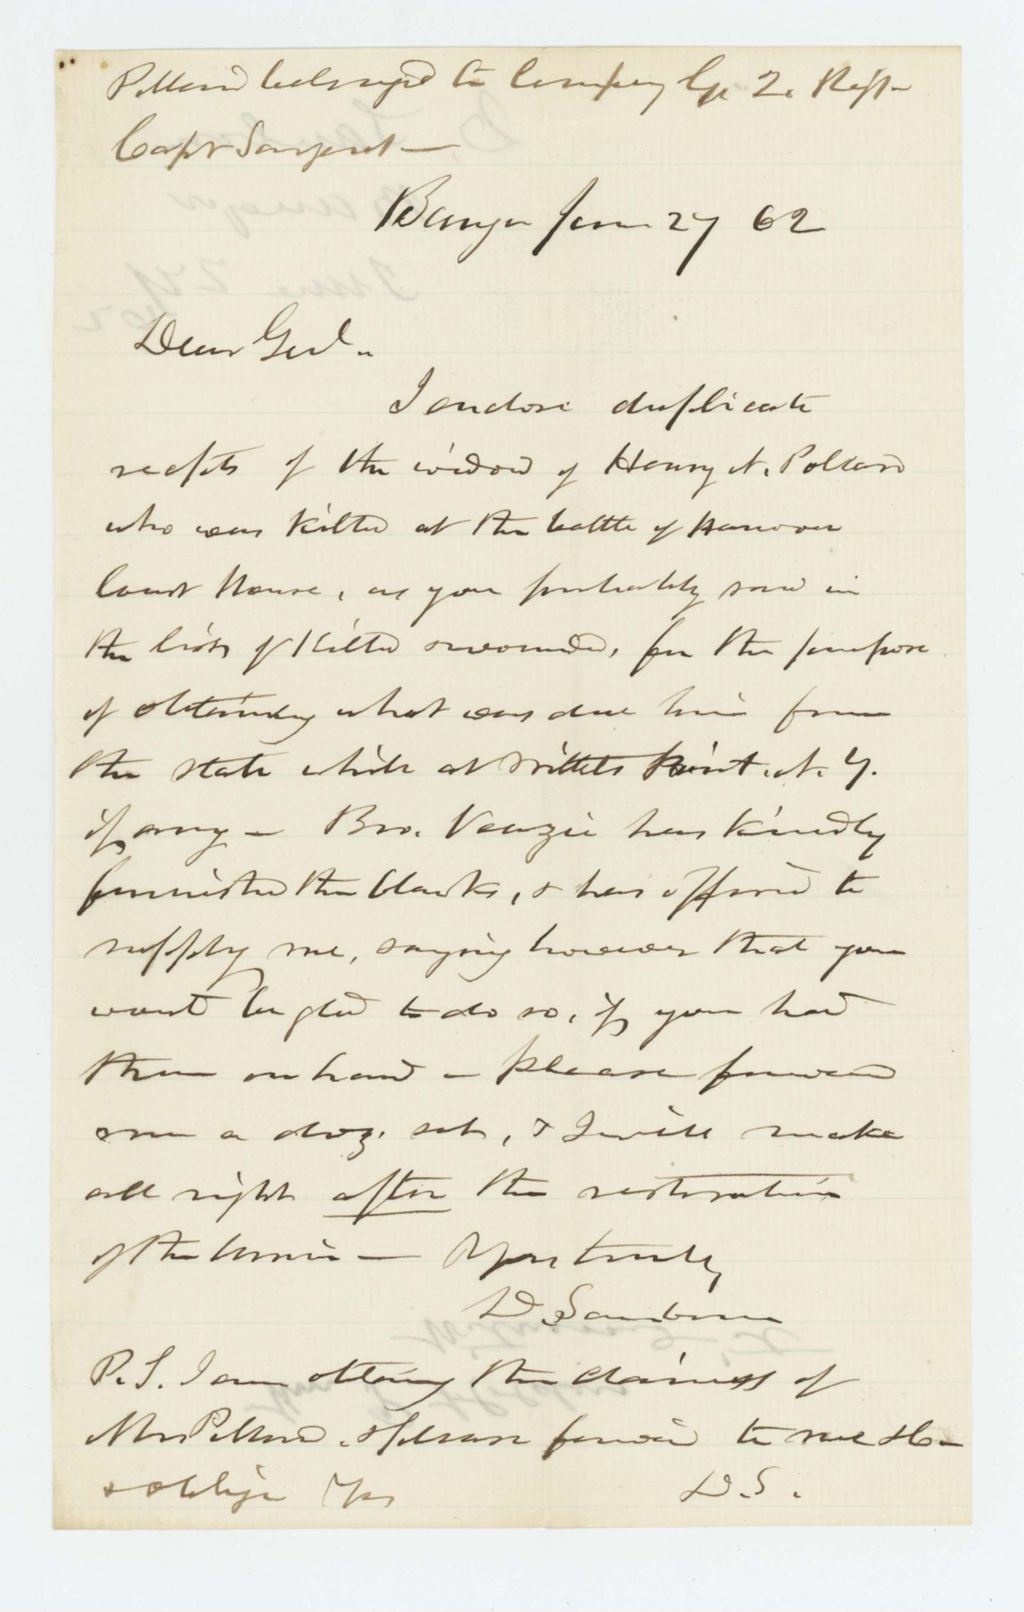 Pollard belonged to Company G. 2. Regt—
Capt Sargent—
Bangor June 27 62
Dear Genl—
I enclose duplicate
recpts of the widow of Henry N. Pollard
who was killed at the battle of Hanover
Court House, as you probably saw in
the lists of killed & wounded, for the purpose
of obtaining what was due him from
the state while at Willets Point. N. Y.
if any — Bro. Veazie has kindly
furnished the blanks, & has offered to
supply me, saying however that you
would be glad to do so, if you had
them on hand — please forward
me a doz. sets, & I will make
all right after the restoration
of the Union — Yours truly
D. Sanborn
P. S. I am obtaining the claims of
Mrs Pollard. & please forward to me &c—
& oblige Yrs D. S.